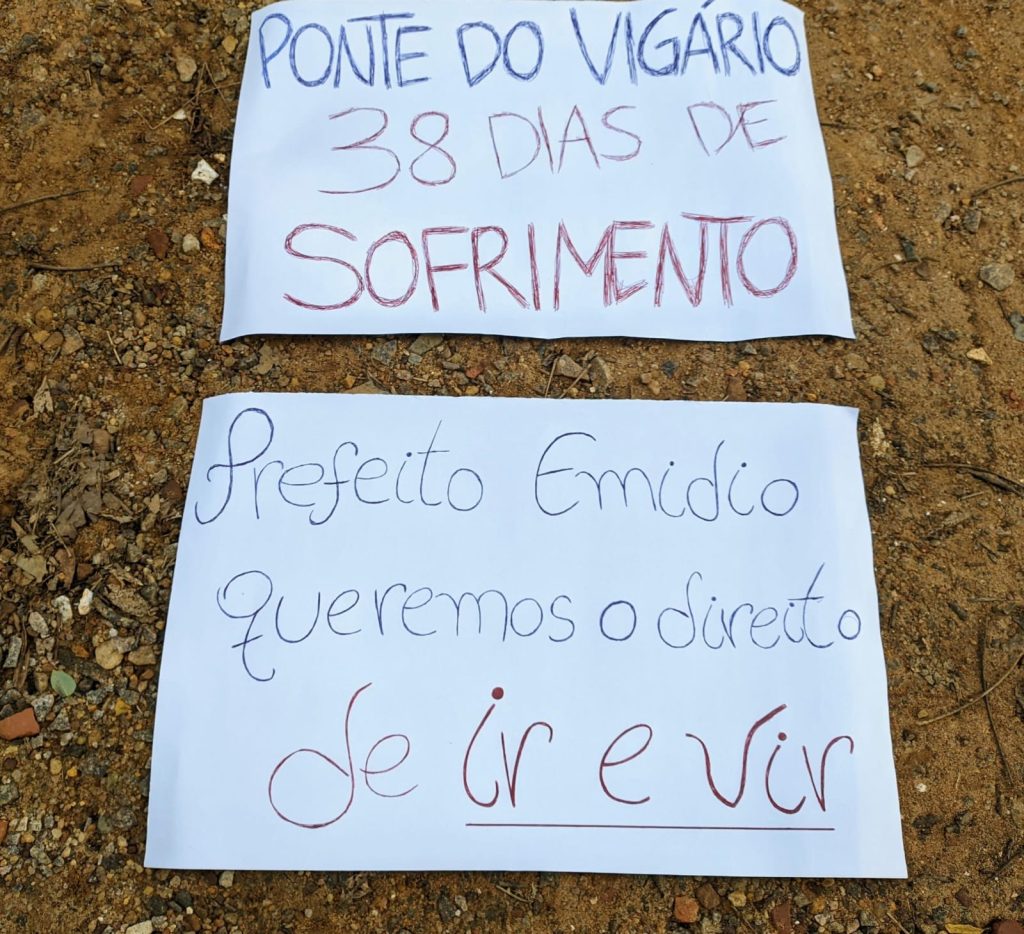 PONTE DO VIGÁRIO
38 DIAS DE
SOFRIMENTO
Prefeito Emidio
queremos o direito
de ir e vir